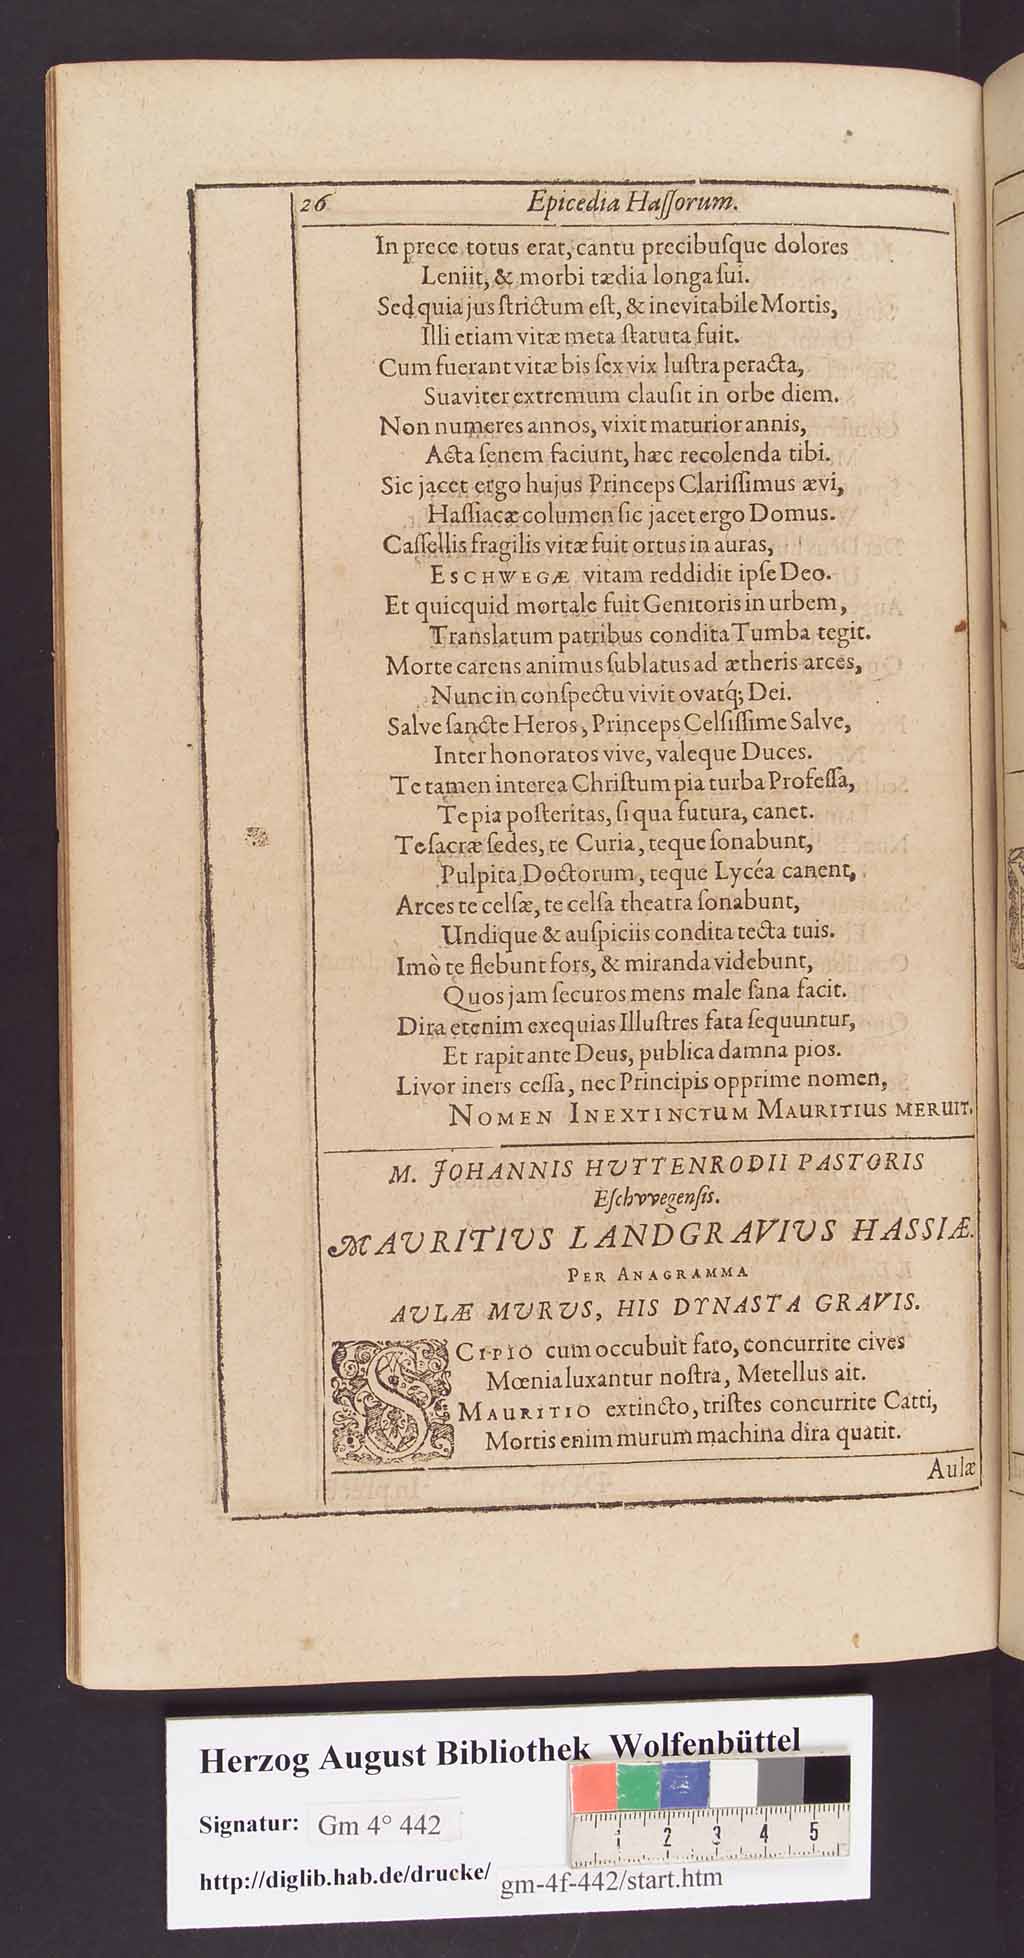 26 Epicedia Haſſorum.
In prece totus erat, cantu precibuſque dolores
Leniit, & morbi tædia longa ſui.
Sed quia jus ſtrictum eſt, & inevitabile Mortis,
Illi etiam vitæ meta ſtatuta fuit.
Cum fuerant vitæ bis ſex vix luſtra peracta,
Suaviter extremum clauſit in orbe diem.
Non numeres annos, vixit maturior annis,
Acta ſenem faciunt, hæc recolenda tibi.
Sic jacet ergo hujus Princeps Clariſſimus ævi,
Haſſiacæ columen ſic jacet ergo Domus.
Caſſellis fragilis vitæ fuit ortus in auras,
ESCHWEGÆ vitam reddidit ipſe Deo.
Et quicquid mortale fuit Genitoris in urbem,
Translatum patribus condita Tumba tegit.
Morte carens animus ſublatus ad ætheris arces,
Nunc in conſpectu vivit ovatq́; Dei.
Salve ſancte Heros, Princeps Celſiſſime Salve,
Inter honoratos vive, valeque Duces.
Te tamen interea Chriſtum pia turba Profeſſa,
Te pia poſteritas, ſi qua futura, canet.
Te ſacræ ſedes, te Curia, teque ſonabunt,
Pulpita Doctorum, teque Lycéa canent,
Arces te celſæ, te celſa theatra ſonabunt,
Undique & auſpiciis condita tecta tuis.
Imò te flebunt fors, & miranda videbunt,
Quos jam ſecuros mens male ſana facit.
Dira etenim exequias Illuſtres fata ſequuntur,
Et rapit ante Deus, publica damna pios.
Livor iners ceſſa, nec Principis opprime nomen,
NOMEN INEXTINCTUM MAURITIUS MERUIT.
M. JOHANNIS HVTTENRODII PASTORIS
Eſchvvegenſis.
MAVRITIVS LANDGRAVIVS HASSIÆ.
PER ANAGRAMMA
AVLÆ MVRVS, HIS DYNASTA GRAVIS.
SCIPIO cum occubuit fato, concurrite cives
Mœnia luxantur noſtra, Metellus ait.
MAURITIO extincto, triſtes concurrite Catti,
Mortis enim murum machina dira quatit.
Aulæ
Herzog August Bibliothek Wolfenbüttel
Signatur: Gm 4° 442
http://diglib.hab.de/drucke/ gm-4f-442/start.htm
1 2 3 4 5